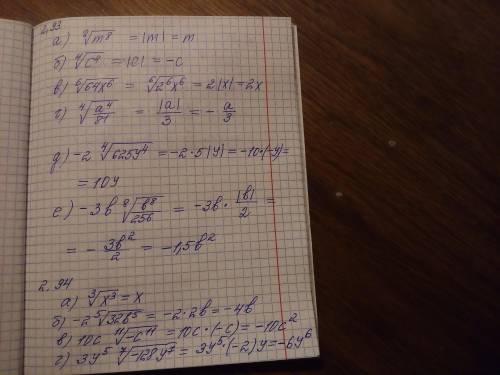 2.93
а) ⁸√m⁸ = |m| = m
б) ⁴√c⁴ = |c| = -c
в) ⁶√64x⁶ = ⁶√2⁶x⁶ = 2|x| = 2x
г) ⁴√a⁴/81 = |a|/3 = - a/3
д) -2 ⁴√625y⁴ = -2·5|y| = -10·(-y) =
= 10y
е) -3в ⁸√в⁸/256 = -3в · |в|/2 =
= - 3в²/2 = -1,5в²
2.94
а) ³√x³ = x
б) -2 ⁵√32в⁵ = -2·2в = -4в
в) 10c ¹¹√-c¹¹ = 10c·(-c) = -10c²
г) 3y⁵ ⁷√-128y⁷ = 3y⁵·(-2)y = -6y⁶